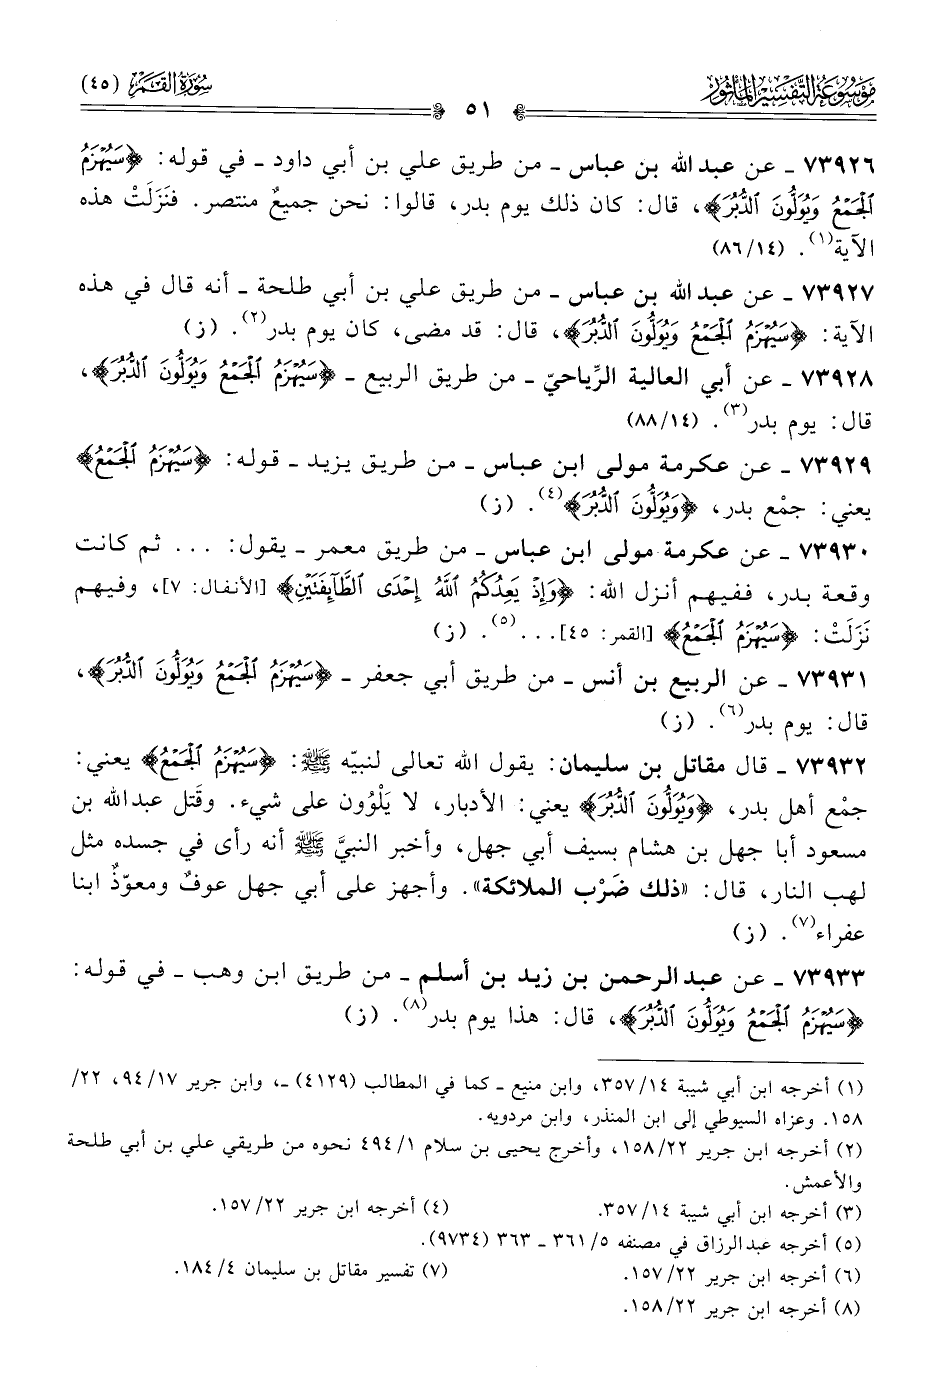 موسوعة التفسير المأثور
٥١
سورة القمر (٤٥)
٧٣٩٢٦ ـ عن عبد الله بن عباس ـ من طريق علي بن أبي داود ـ في قوله: ﴿سَيُهْزَمُ
ٱلْجَمْعُ وَيُوَلُّونَ ٱلدُّبُرَ﴾، قال: كان ذلك يوم بدر، قالوا: نحن جميعٌ منتصر. فنَزَلَتْ هذه
الآية(١). (٨٦/١٤)
٧٣٩٢٧ ـ عن عبد الله بن عباس ـ من طريق علي بن أبي طلحة ـ أنه قال في هذه
الآية: ﴿سَيُهْزَمُ ٱلْجَمْعُ وَيُوَلُّونَ ٱلدُّبُرَ﴾، قال: قد مضى، كان يوم بدر(٢). (ز)
٧٣٩٢٨ ـ عن أبي العالية الرِّياحيّ ـ من طريق الربيع ـ ﴿سَيُهْزَمُ ٱلْجَمْعُ وَيُوَلُّونَ ٱلدُّبُرَ﴾،
قال: يوم بدر(٣). (٨٨/١٤)
٧٣٩٢٩ ـ عن عكرمة مولى ابن عباس ـ من طريق يزيد ـ قوله: ﴿سَيُهْزَمُ ٱلْجَمْعُ﴾
يعني: جمْع بدر، ﴿وَيُوَلُّونَ ٱلدُّبُرَ﴾(٤). (ز)
٧٣٩٣٠ ـ عن عكرمة مولى ابن عباس ـ من طريق معمر ـ يقول: ... ثم كانت
وقعة بدر، ففيهم أنزل الله: ﴿وَإِذْ يَعِدُكُمُ ٱللَّهُ إِحْدَى ٱلطَّآئِفَتَيْنِ﴾ [الأنفال: ٧]، وفيهم
نَزَلَتْ: ﴿سَيُهْزَمُ ٱلْجَمْعُ﴾ [القمر: ٤٥]...(٥). (ز)
٧٣٩٣١ ـ عن الربيع بن أنس ـ من طريق أبي جعفر ـ ﴿سَيُهْزَمُ ٱلْجَمْعُ وَيُوَلُّونَ ٱلدُّبُرَ﴾،
قال: يوم بدر(٦). (ز)
٧٣٩٣٢ ـ قال مقاتل بن سليمان: يقول الله تعالى لنبيّه ﷺ: ﴿سَيُهْزَمُ ٱلْجَمْعُ﴾ يعني:
جمْع أهل بدر، ﴿وَيُوَلُّونَ ٱلدُّبُرَ﴾ يعني: الأدبار، لا يَلْوُون على شيء. وقَتل عبد الله بن
مسعود أبا جهل بن هشام بسيف أبي جهل، وأخبر النبيَّ ﷺ أنه رأى في جسده مثل
لهب النار، قال: «ذلك ضَرْب الملائكة». وأجهز على أبي جهل عوفٌ ومعوّذٌ ابنا
عفراء(٧). (ز)
٧٣٩٣٣ ـ عن عبد الرحمن بن زيد بن أسلم ـ من طريق ابن وهب ـ في قوله:
﴿سَيُهْزَمُ ٱلْجَمْعُ وَيُوَلُّونَ ٱلدُّبُرَ﴾، قال: هذا يوم بدر(٨). (ز)
(١) أخرجه ابن أبي شيبة ٣٥٧/١٤، وابن منيع ـ كما في المطالب (٤١٢٩) ـ، وابن جرير ٩٤/١٧، ٢٢/
١٥٨. وعزاه السيوطي إلى ابن المنذر، وابن مردويه.
(٢) أخرجه ابن جرير ١٥٨/٢٢، وأخرج يحيى بن سلام ٤٩٤/١ نحوه من طريقي علي بن أبي طلحة
والأعمش.
(٣) أخرجه ابن أبي شيبة ٣٥٧/١٤. (٤) أخرجه ابن جرير ١٥٧/٢٢.
(٥) أخرجه عبد الرزاق في مصنفه ٣٦١/٥ ـ ٣٦٣ (٩٧٣٤).
(٦) أخرجه ابن جرير ١٥٧/٢٢. (٧) تفسير مقاتل بن سليمان ١٨٤/٤.
(٨) أخرجه ابن جرير ١٥٨/٢٢.